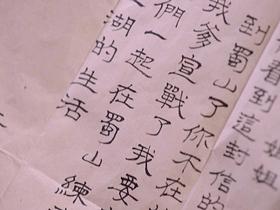 姐姐
到這封信的
到蜀山了你不在
我爹宣戰了我要
們一起在蜀山練
湖的生活